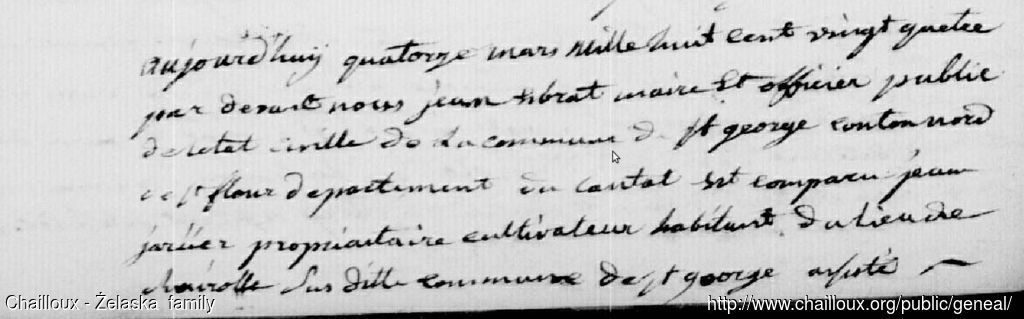 aujourd'huy quatorze mars mille huit cent vingt quatre
par devant nous jean vibrat maire et officier public
de letat civille de la commune de st george conton nord
de st flour departement du cantal est comparu jean
jarlier propriaitaire cultivateur habitant du lieu de
susditte commune de st george assisté
Chailloux - Żelaska family
http://www.chailloux.org/public/geneal/